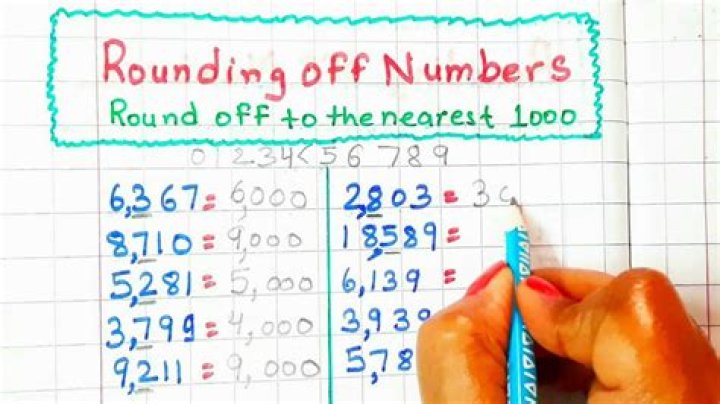 Rounding off Numbers
Round off to the nearest 1000
0 1 2 3 4 < 5 6 7 8 9
6,367 = 6,000
8,710 = 9,000
5,281 = 5,000
3,799 = 4,000
9,211 = 9,000
2,803 = 3
18,589 =
6,139 =
3,939
5,78